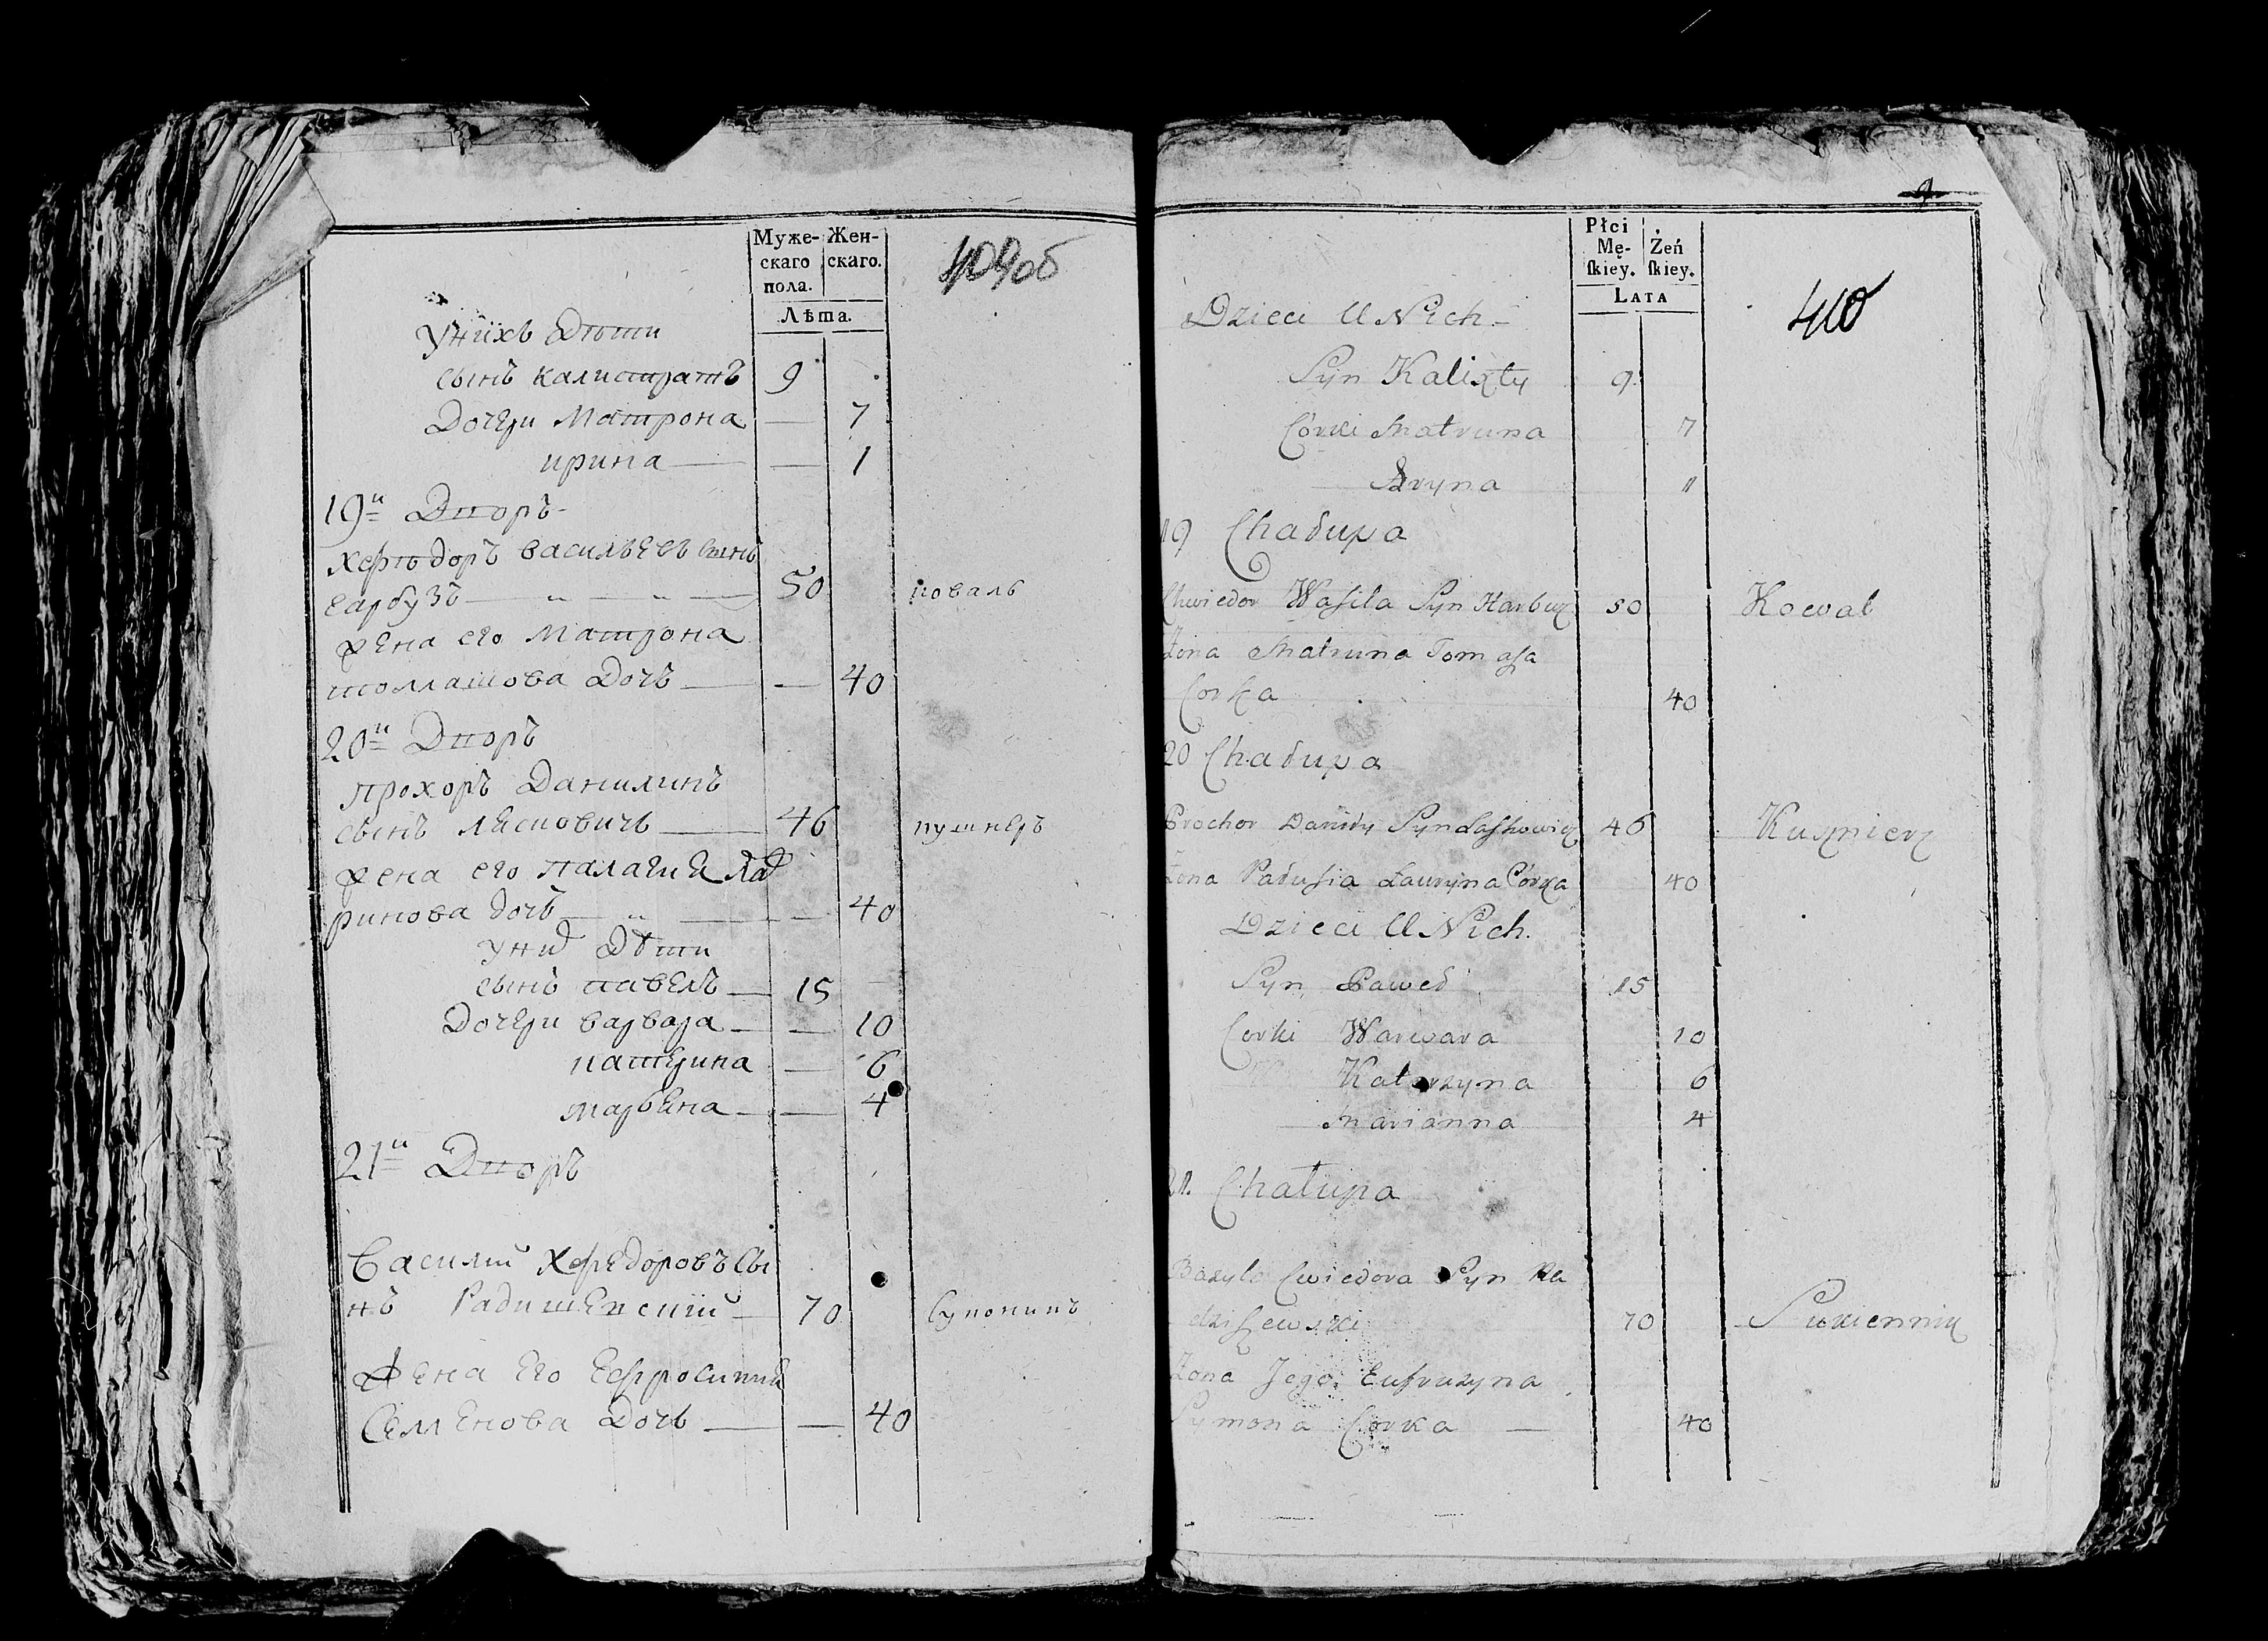 Муже-
скаго
пола.
Жен-
скаго.
Лѣта.
409об
Уних Дѣти
сынъ калистратъ 9
Дочери Матрона — 7
ирина — — 1
19й Дворъ
Хефѣдоръ васильевъ сынъ
гарбузъ — „ — „ — 50 коваль
жена его Матрона
томашова Дочь — — 40
20й Дворъ
прохоръ Данилинъ
сынъ лясковичь — 46 кушнеръ
жена его палагия лав
ринова дочь — „ — — 40
у них Дѣти
сынъ павелъ — 15
Дочери варвара — — 10
катерина — 6
марьена — — 4
21й Дворъ
Василий Хефедоровъ сы
нъ Радишевский — 70 Суконникъ
Жена Его Ефросиния
Семенова Дочь — — 40
Płci
Mę-
ſkiey.
Żeń
ſkiey.
LATA
410
Dzieci U Nich
Syn Kalixty 9
Córki Matruna 7
Aryna 1
19 Chałupa
Chwiedor Wasila Syn Harbuz 50 Kowal
Żona Matruna Tomasza
Corka 40
20 Chałupa
Prochor Daniły Syn Laskowicz 46 Kusznierz
Żona Pałusia Ławryna Córka 40
Dzieci U Nich.
Syn Paweł 15
Corki Warwara 10
Katarzyna 6
Marianna 4
21. Chałupa
Bazyl Cwiedora Syn Ra
dziszewski 70 Sukiennik
Żona Jego Eufruzyna
Symona Corka — 40